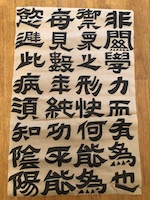 非關學力而有為也
御眾之形快何能為
每見數年純功不能
慾避此病須知陰陽